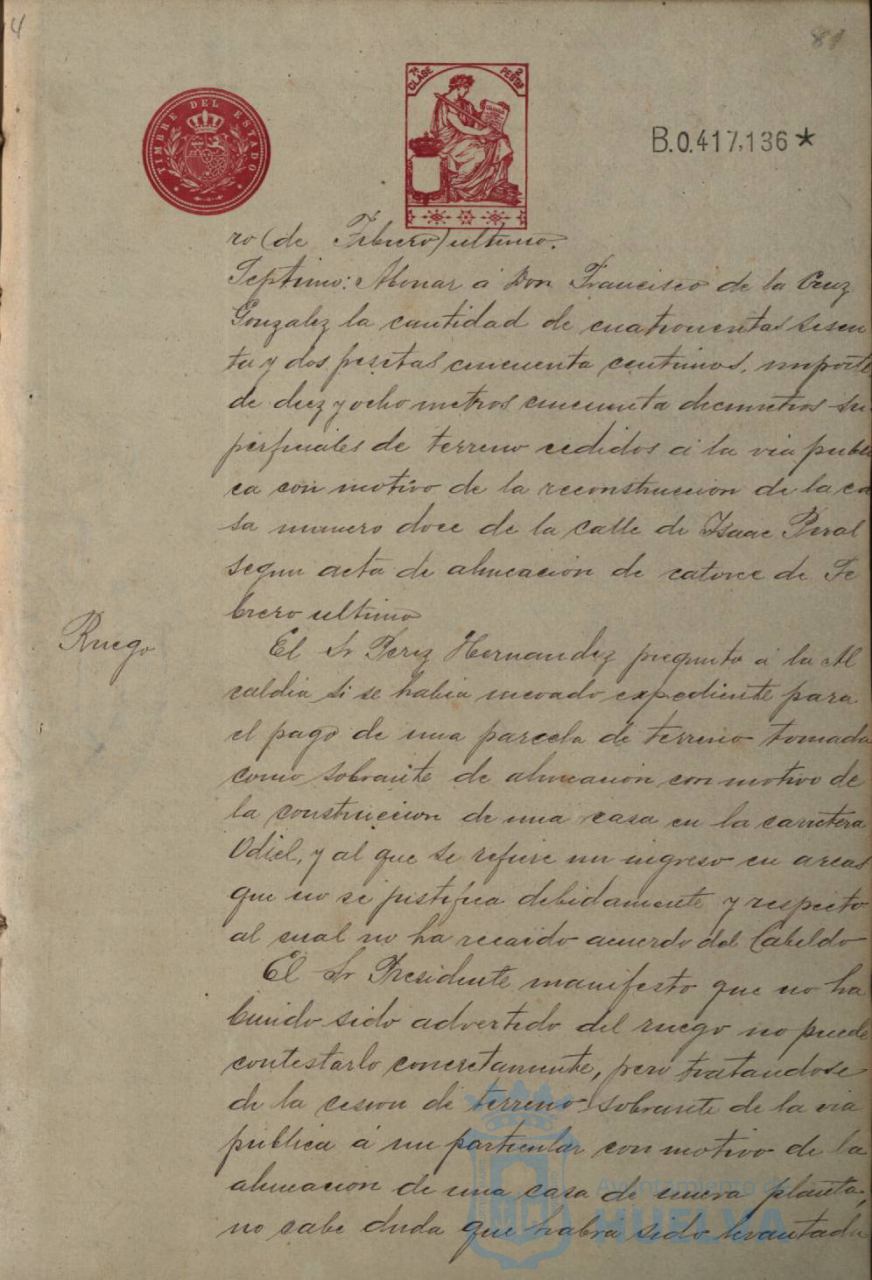 4
81
TIMBRE DEL ESTADO
7ª CLASE 2 PESTAS
B.0.417,136*
ro (de Febrero) ultimo.
Septimo: Abonar á Don Francisco de la Cruz
Gonzalez la cantidad de cuatrocientas sesen
ta y dos pesetas cincuenta centimos, importe
de diez y ocho metros cincuenta decimetros su
perficiales de terreno cedidos á la via publi
ca con motivo de la reconstruccion de la ca
sa numero doce de la calle de Isaac Peral
segun acta de alineación de catorce de Fe
brero ultimo
Ruego
El Sr Perez Hernandez pregunto á la Al
caldia si se habia incoado expediente para
el pago de una parcela de terreno tomada
como sobrante de alineación con motivo de
la construccion de una casa en la carretera
Odiel, y al que se refiere un ingreso en arcas
que no se justifica debidamente y respecto
al cual no ha recaido acuerdo del Cabildo
El Sr Presidente manifesto que no ha
biendo sido advertido del ruego no puede
contestarlo concretamente, pero tratandose
de la cesion de terreno sobrante de la via
publica á un particular con motivo de la
alineacion de una casa de nueva planta,
no cabe duda que habra sido levantada
Ayuntamiento de
HUELVA